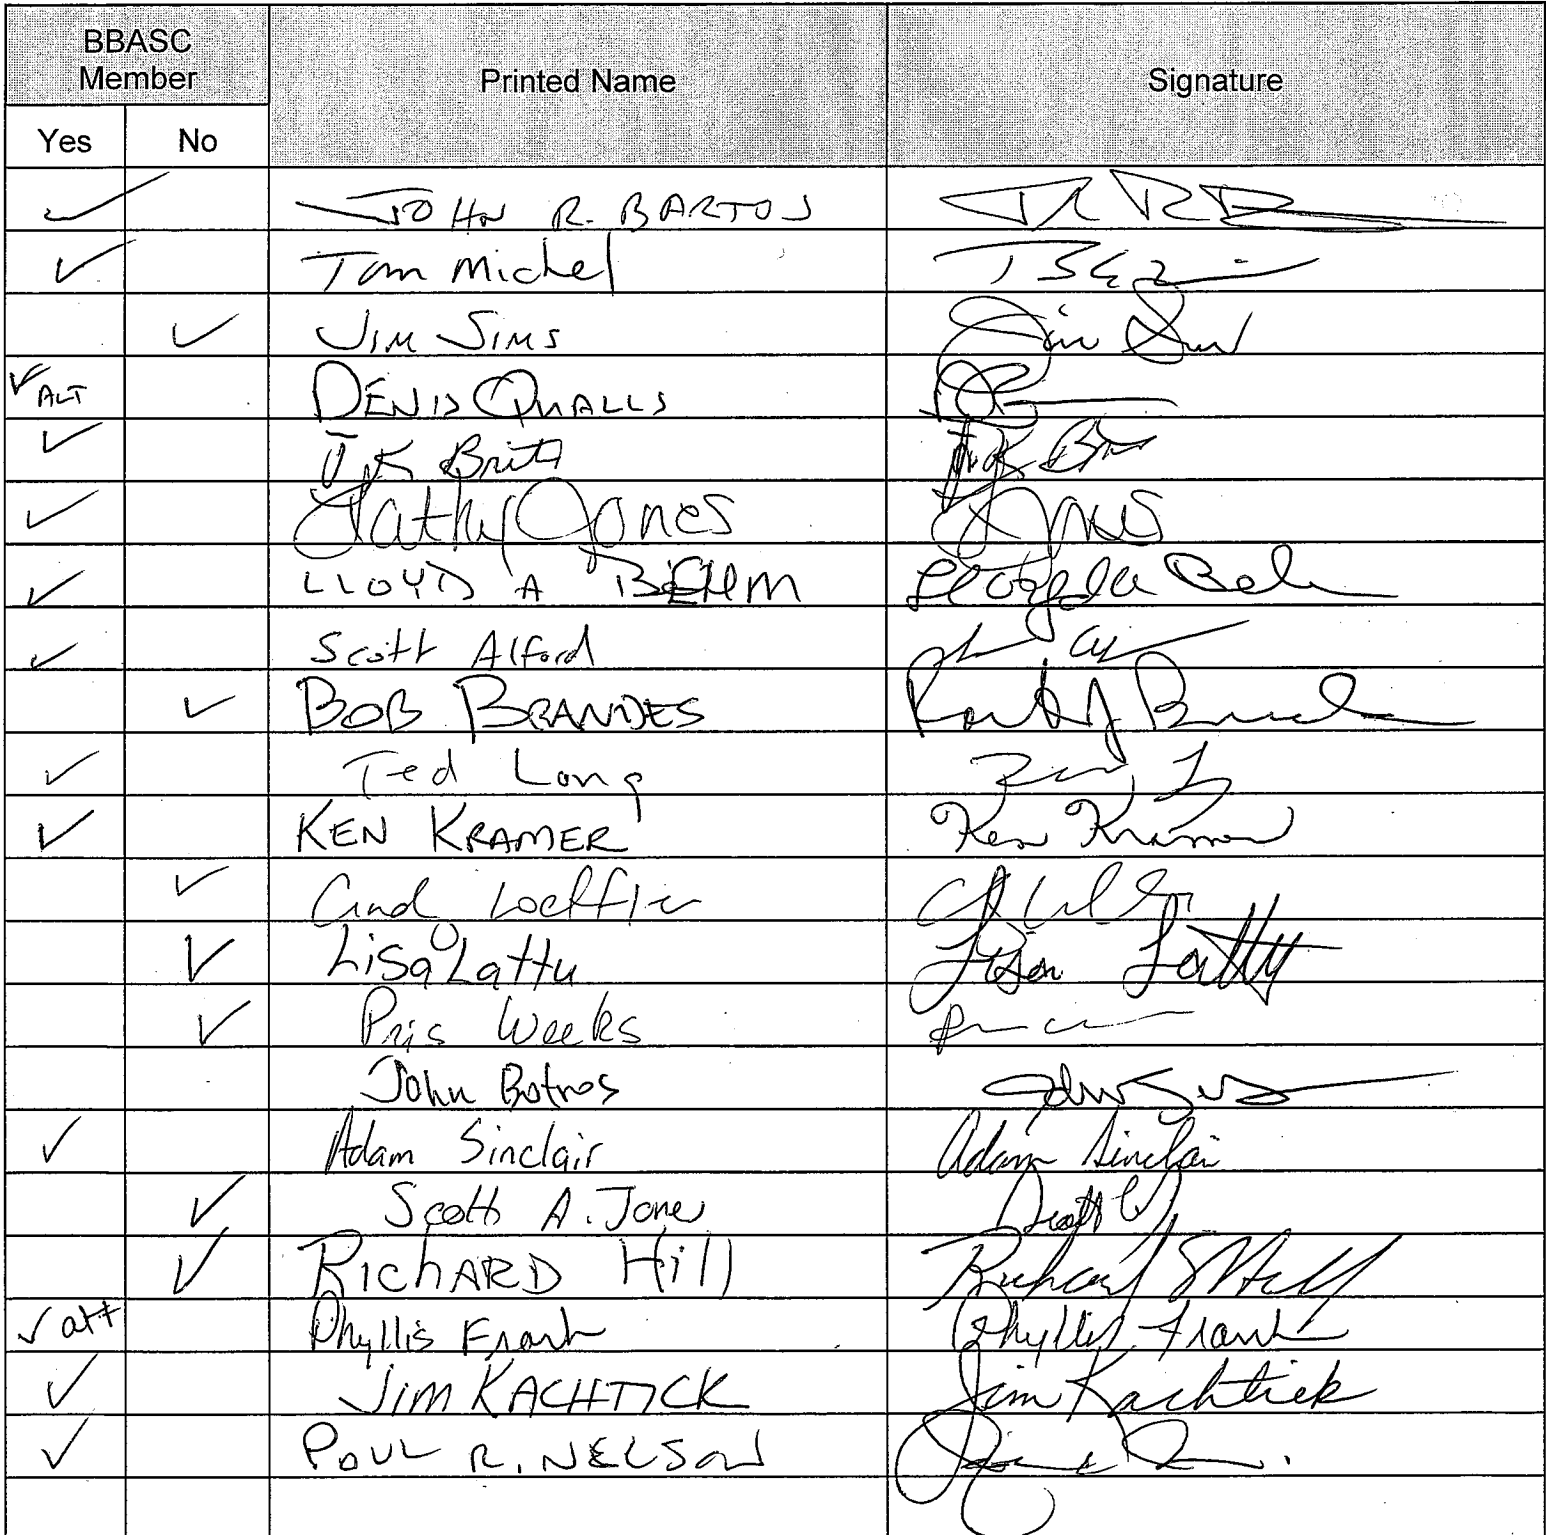 BBASC
Member
Printed Name
Signature
Yes No
✓ JOHN R. BARTOS
✓ Tom Michel
✓ JIM SIMS Jim Sims
✓ ALT DENIS QUALLS
✓ T K Britt
✓ Kathy Jones Jones
✓ LLOYD A BEHM
✓ Scott Alford
✓ BOB BRANDES
✓ Ted Long
✓ KEN KRAMER Ken Kramer
✓ Cindy Loeffler
✓ Lisa Lattu Lisa Lattu
✓ Pris Weeks
John Botros
✓ Adam Sinclair Adam Sinclair
✓ Scott A. Jones Scott
✓ RICHARD Hill Richard Hill
✓ alt Phyllis Frank Phyllis Frank
✓ JIM KACHTICK Jim Kachtick
✓ PAUL R. NELSON